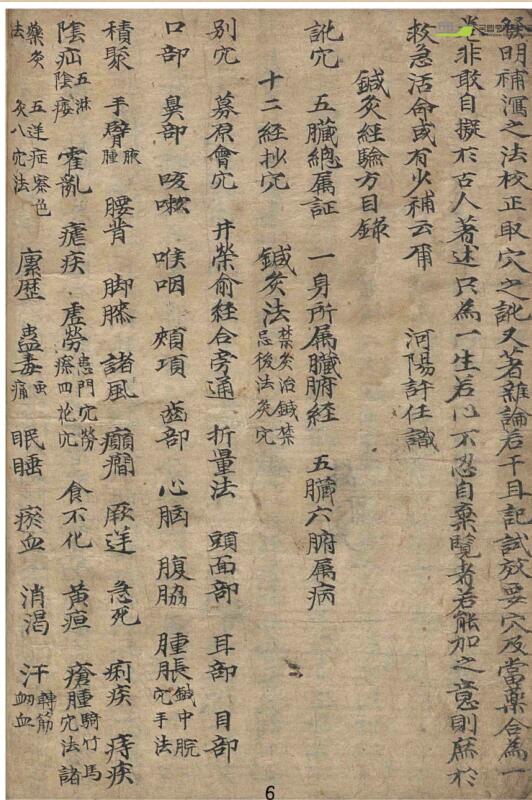 發明補瀉之法校正取穴之訛又著雜論若干且記試效要穴及當藥合爲一
卷非敢自擬於古人著述只爲一生苦心不忍自棄覽者若能加之意則庶於
救急活命或有少補云爾 河陽許任識
鍼灸經驗方目錄
訛穴 五臟總属証 一身所属臟腑経 五臟六腑属病
十二経抄穴 鍼灸法 禁灸治鍼禁 忌後法灸穴
別穴 募原會穴 井荣俞経合旁通 折量法 頭面部 耳部 目部
口部 鼻部 咳嗽 喉咽 頰項 齒部 心胸 腹脇 腫脹 鍼中脘 穴手法
積聚 手臂 腋腫 腰背 脚膝 諸風 癲癎 厥逆 急死 痢疾 痔疾
陰疝 五淋 陰痿 霍亂 瘧疾 虚勞 患門穴勞 瘵四花穴 食不化 黃疸 瘡腫 騎竹馬 穴法諸
藥灸法 五逆症察色 灸八穴法 瘰歴 蠱毒 虫痛 眠睡 瘀血 消渴 汗 轉筋 衂血
6